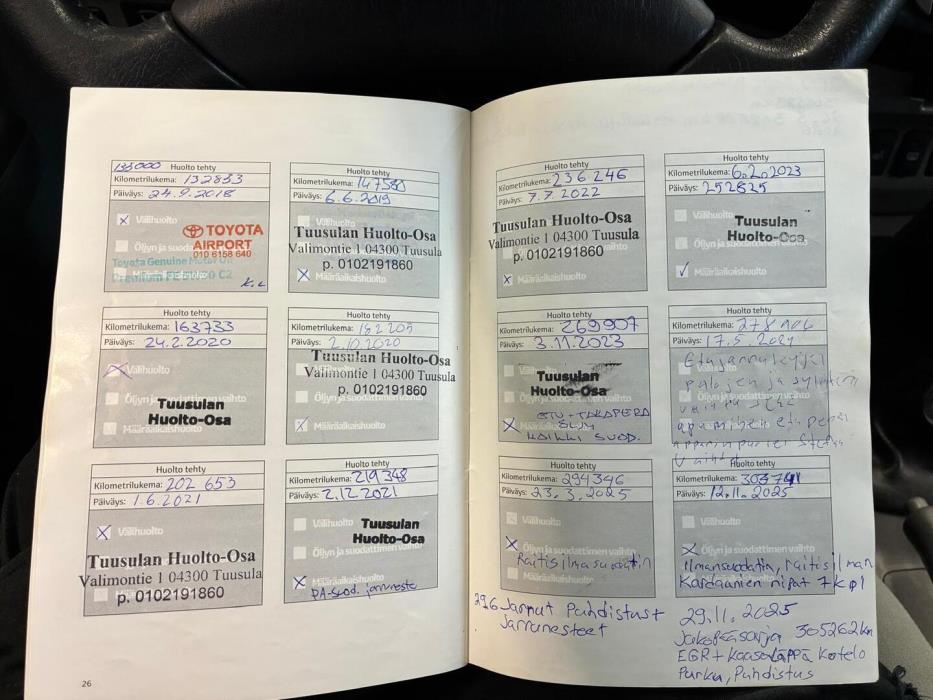 133000 Huolto tehty
Kilometrilukema: 132833
Päiväys: 24.9.2018
Välihuolto
TOYOTA
AIRPORT
010 6158 640
Öljyn ja suoda
Toyota Genuine Motor Oil
Premium C2
Määräaikaishuolto
K.L
Huolto tehty
Kilometrilukema: 147580
Päiväys: 6.6.2019
Välihuolto
Tuusulan Huolto-Osa
Valimontie 1 04300 Tuusula
p. 0102191860
Määräaikaishuolto
Huolto tehty
Kilometrilukema: 163733
Päiväys: 24.2.2020
Välihuolto
Öljyn ja suodattimen vaihto
Tuusulan
Huolto-Osa
Määräaikaishuolto
Huolto tehty
Kilometrilukema: 182205
Päiväys: 2.10.2020
Tuusulan Huolto-Osa
Valimontie 1 04300 Tuusula
p. 0102191860
Öljyn ja suodattimen vaihto
Määräaikaishuolto
Huolto tehty
Kilometrilukema: 202 653
Päiväys: 1.6.2021
Välihuolto
Tuusulan Huolto-Osa
Valimontie 1 04300 Tuusula
p. 0102191860
Huolto tehty
Kilometrilukema: 219348
Päiväys: 2.12.2021
Välihuolto
Tuusulan
Huolto-Osa
Öljyn ja suodattimen vaihto
Määräaikaishuolto
PA-suod. jarruneste
26
Huolto tehty
Kilometrilukema: 236 246
Päiväys: 7.7.2022
Tuusulan Huolto-Osa
Valimontie 1 04300 Tuusula
p. 0102191860
Määräaikaishuolto
Huolto tehty
Kilometrilukema: 252825
Päiväys: 6.2.2023
Välihuolto
Tuusulan
Huolto-Osa
Öljyn ja suodattimen vaihto
Määräaikaishuolto
Huolto tehty
Kilometrilukema: 269907
Päiväys: 3.11.2023
Välihuolto
Tuusulan
Huolto-Osa
ETU+TAKAPERÄ
ÖLJY
KAIKKI SUOD.
Huolto tehty
Kilometrilukema:
Päiväys: 17.5.
palojen ja
Huolto tehty
Kilometrilukema: 294346
Päiväys: 23.3.2025
Välihuolto
Öljyn ja suodattimen vaihto
Raitisilmasuodatin
Määräaikaishuolto
296 Jarrut Puhdistust
Jarrunesteet
Huolto tehty
Kilometrilukema: 303741
Päiväys: 12.11.2025
Välihuolto
Öljyn ja suodattimen vaihto
Ilmansuodatin, raitisilman
Kardaanien nipat 7kpl
29.11.2025
Jakopääsarja 305262km
EGR+Kaasuläppä Kotelo
Purku, Puhdistus